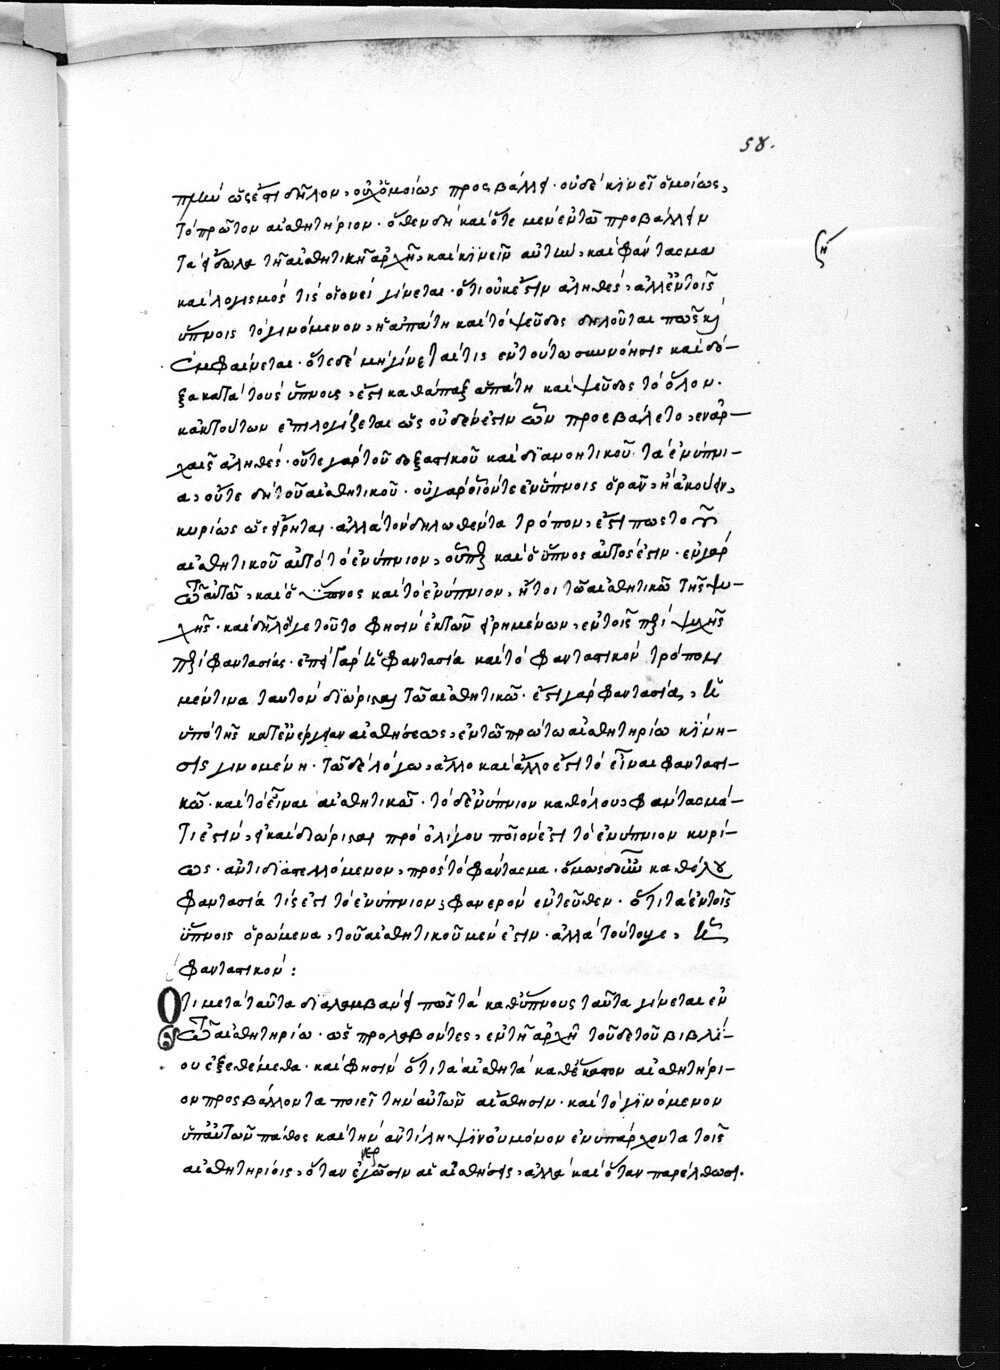 58.
ὡς ἐπιδῆλον, οὐχ ὁμοίως προςβάλλει. οὐδὲ κινεῖ ὁμοίως,
τὸ πρῶτον αἰσθητήριον. ὅθεν δὴ καὶ ὅτε μὲν ἐν τῷ προβάλλειν
τὰ εἴδωλα τῇ αἰσθητικῇ ἀρχῇ, καὶ κινεῖν αὐτὴν, καὶ φάντασμα
καὶ λογισμός τις οἱονεὶ γίνεται. ὅτι οὐκ ἔστιν ἀληθὲς, ἀλλ' ἐν τοῖς
ὕπνοις τὸ γινόμενον, ἡ ἀπάτη καὶ τὸ ψεῦδος δηλοῦται πως καὶ
ἐμφαίνεται. ὅτε δὲ μὴ γίνεται τις ἐν τούτω συννόησις καὶ δό-
ξα κατὰ τοὺς ὕπνους, ἔστι καθάπαξ ἀπάτη καὶ ψεῦδος τὸ ὅλον.
κἀκ τούτων ἐπιλογίζεται ὡς οὐδέν ἐστιν ὧν προεβάλετο, ἐν ἀρ-
χαῖς ἀληθές. οὔτε γὰρ τοῦ δοξαστικοῦ καὶ διανοητικοῦ τὰ ἐνύπνι-
α, οὔτε δὴ τοῦ αἰσθητικοῦ. οὐ γὰρ οἷόν τε ἐν ὕπνοις ὁρᾶν, ἢ ἀκούειν,
κυρίως ὡς εἴρηται. ἀλλὰ τὸν δηλωθέντα τρόπον, ἔστι πως τοῦ
αἰσθητικοῦ αὐτὸ τὸ ἐνύπνιον, οὗπερ καὶ ὁ ὕπνος αὐτός ἐστιν. ἐν γὰρ
τῷ αὐτῷ, καὶ ὁ ὕπνος καὶ τὸ ἐνύπνιον, ἤτοι τῷ αἰσθητικῷ τῆς ψυ-
χῆς. καὶ δῆλόν γε τοῦτο φησὶν ἐκ τῶν εἰρημένων, ἐν τοῖς περὶ ψυχῆς
περὶ φαντασίας. ἐπεὶ γὰρ ἡ φαντασία καὶ τὸ φανταστικὸν τρόπον
μέντινα ταυτὸν διώρισται τῷ αἰσθητικῷ. ἔστι γὰρ φαντασία, ἡ
ὑπὸ τῆς κατ' ἐνέργειαν αἰσθήσεως, ἐν τῷ πρώτω αἰσθητηρίω κίνη-
σις γινομένη. τῷ δὲ λόγω, ἄλλο καὶ ἄλλο ἐστὶ τὸ εἶναι φανταστι-
κῷ. καὶ τὸ εἶναι αἰσθητικῷ. τὸ δ' ἐνύπνιον καθόλου, φαντασμά-
τι ἐστὶν, εἰ καὶ διώρισται πρὸ ὀλίγου ποῖον ἐστὶ τὸ ἐνύπνιον κυρί-
ως. ἀντιδιαστελλόμενον, πρὸς τὸ φάντασμα. ὅμως καθόλου
φαντασία τίς ἐστι τὸ ἐνύπνιον, φανερὸν ἐντεῦθεν. ὅτι τὰ ἐν τοῖς
ὕπνοις ὁρώμενα, τοῦ αἰσθητικοῦ μέν ἐστιν. ἀλλὰ τούτου γε, ἡ
φανταστικόν:
Ὅτι μετὰ ταῦτα διαλαμβάνει πῶς τὰ καθύπνους ταῦτα γίνεται ἐν
τῷ αἰσθητηρίω. ὡς προλαβόντες, ἐν τῇ ἀρχῇ τοῦδε τοῦ βιβλί-
ου ἐξεθέμεθα. καὶ φησὶν ὅτι τὰ αἰσθητὰ καθ' ἕκαστον αἰσθητήρι-
ον προςβάλλοντα ποιεῖ τὴν αὐτῶν αἴσθησιν. καὶ τὸ γινόμενον
ὑπ' αὐτῶν πάθος καὶ τὴν ἀντίληψιν οὐ μόνον ἐνυπάρχοντα τοῖς
αἰσθητηρίοις, ὅταν ἐνεργῶσιν αἱ αἰσθήσεις, ἀλλὰ καὶ ὅταν παρέλθωσι.